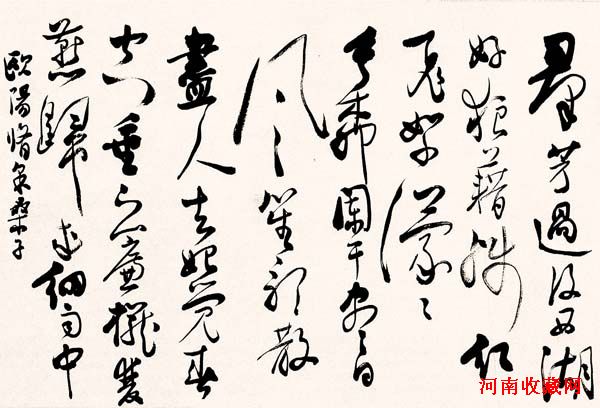 羣芳過後西湖
好狼藉殘紅
飛絮濛〻
垂柳闌干盡日
風〻笙歌散
盡人去始覺春
空垂下簾櫳雙
燕歸來細雨中
歐陽脩采桑子
河南收藏网